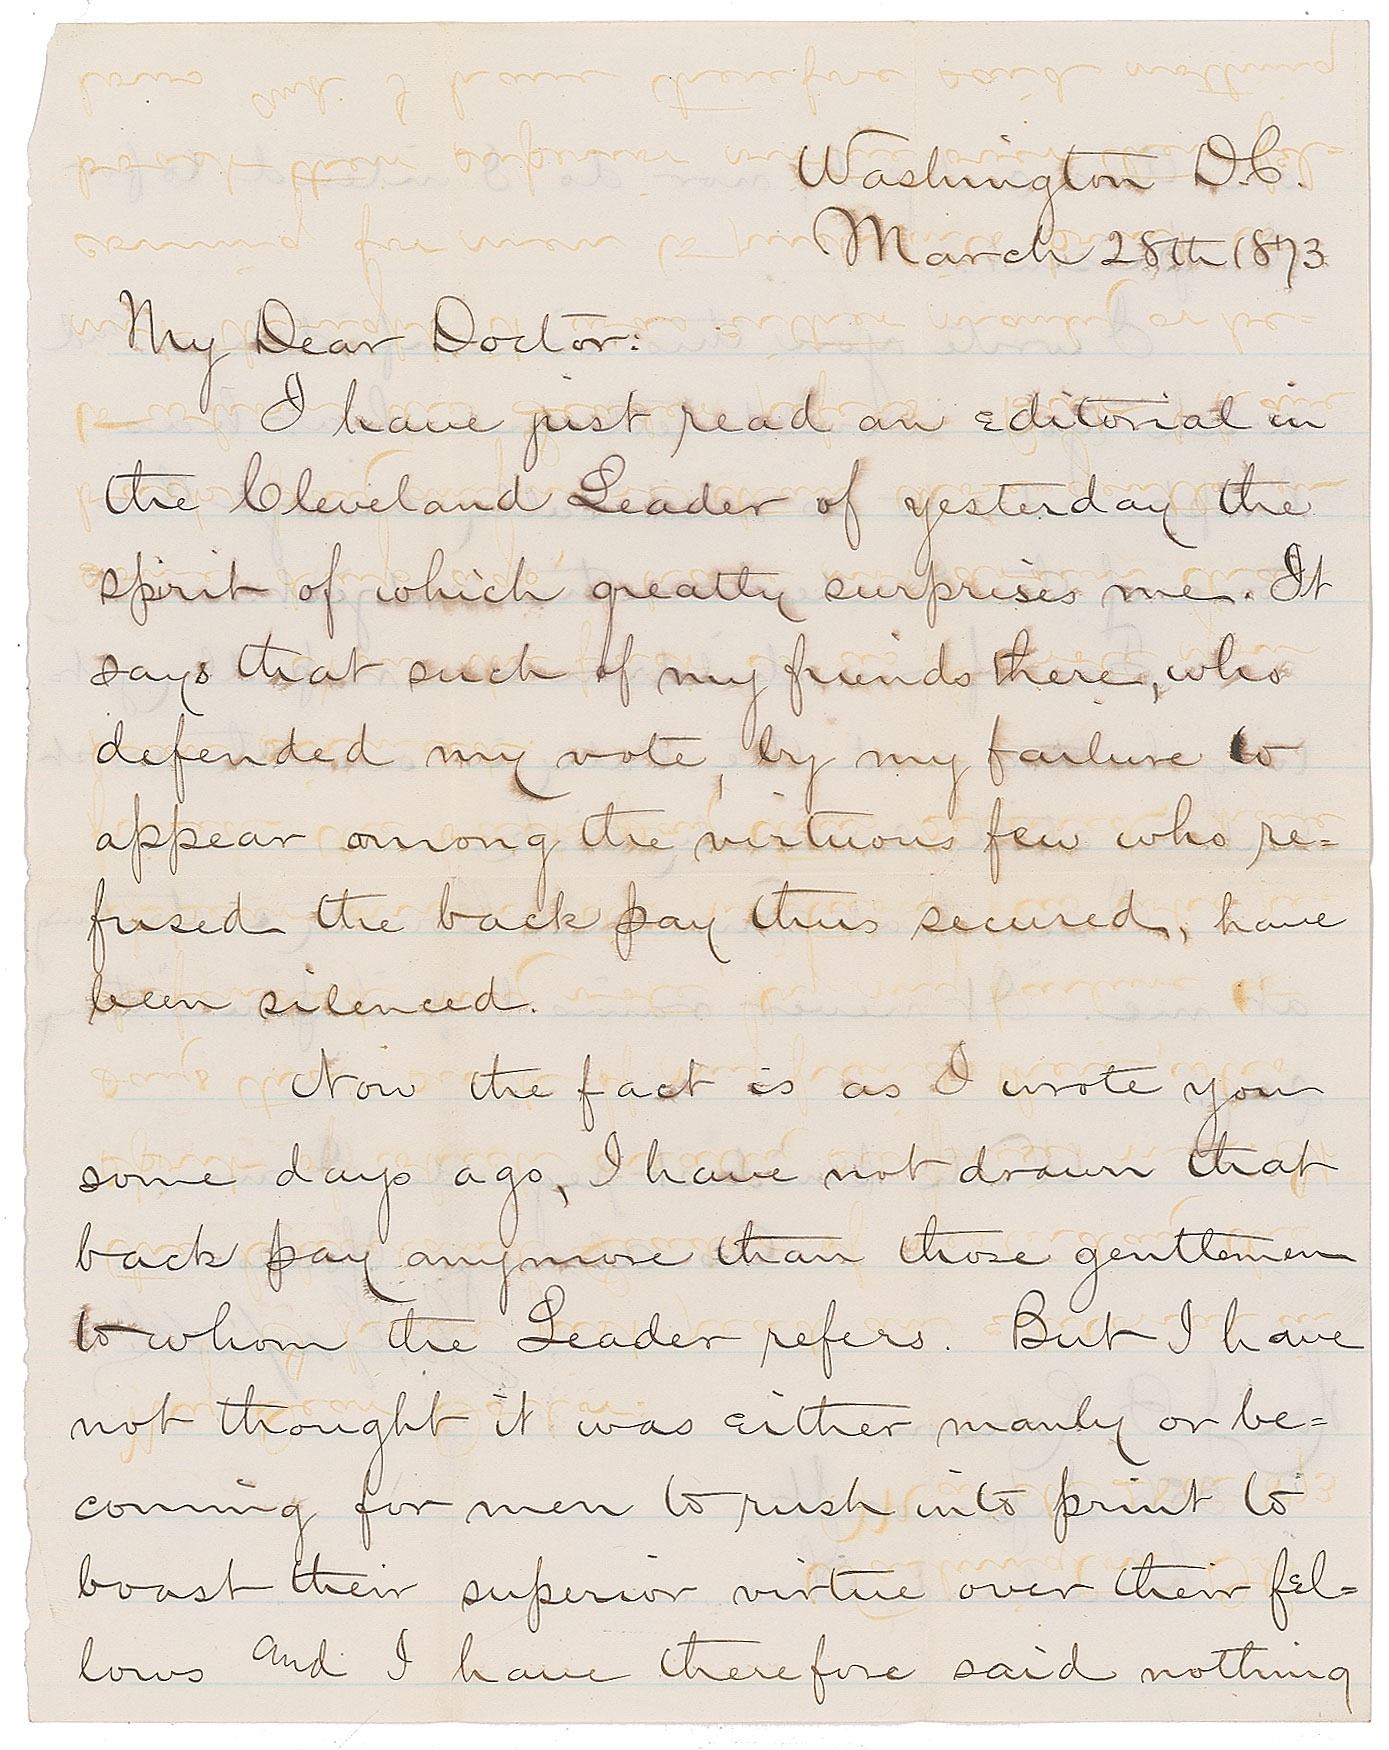 Washington D.C.
March 28th 1873
My Dear Doctor:
I have just read an editorial in
the Cleveland Leader of yesterday the
spirit of which greatly surprises me. It
says that such of my friends there, who
defended my vote, by my failure to
appear among the virtuous few who re=
fused the back pay thus secured, have
been silenced.
Now the fact is as I wrote you
some days ago, I have not drawn that
back pay anymore than those gentlemen
to whom the Leader refers. But I have
not thought it was either manly or be=
coming for men to rush into print to
boast their superior virtue over their fel=
lows and I have therefore said nothing